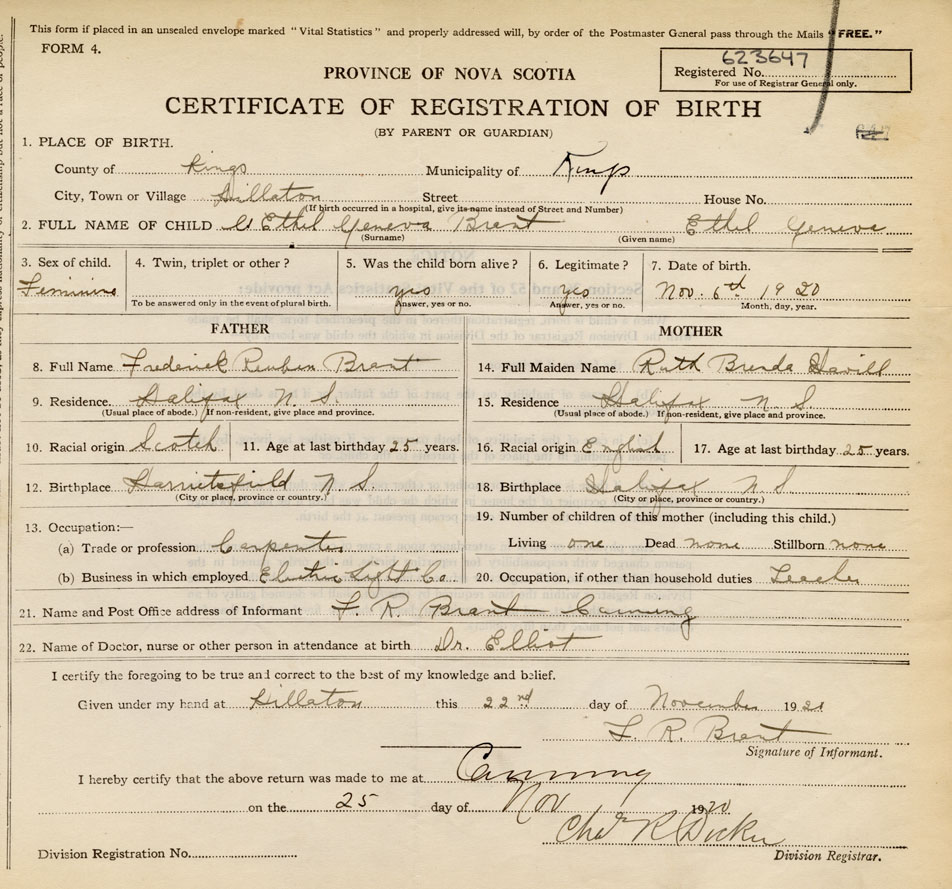 This form if placed in an unsealed envelope marked "Vital Statistics" and properly addressed will, by order of the Postmaster General pass through the Mails "FREE."
FORM 4.
623647
Registered No.
For use of Registrar General only.
PROVINCE OF NOVA SCOTIA
CERTIFICATE OF REGISTRATION OF BIRTH
(BY PARENT OR GUARDIAN)
1. PLACE OF BIRTH.
County of Kings Municipality of Kings
City, Town or Village Hillaton Street House No.
(If birth occurred in a hospital, give its name instead of Street and Number)
2. FULL NAME OF CHILD Ethel Geneva Brent Ethel Geneva
(Surname) (Given name)
3. Sex of child. 4. Twin, triplet or other? 5. Was the child born alive? 6. Legitimate? 7. Date of birth.
Feminine yes yes Nov. 6th 1920
To be answered only in the event of plural birth. Answer, yes or no. Answer, yes or no. Month, day, year.
FATHER MOTHER
8. Full Name Frederick Reuben Brent 14. Full Maiden Name Ruth Brenda Havill
9. Residence. Halifax N. S. 15. Residence Halifax N. S.
(Usual place of abode.) If non-resident, give place and province. (Usual place of abode.) If non-resident, give place and province.
10. Racial origin Scotch 11. Age at last birthday 25 years. 16. Racial origin English 17. Age at last birthday 25 years.
12. Birthplace Harrietsfield N. S. 18. Birthplace Halifax N. S.
(City or place, province or country.) (City or place, province or country.)
13. Occupation:— 19. Number of children of this mother (including this child.)
(a) Trade or profession Carpenter Living one Dead none Stillborn none
(b) Business in which employed Electric Light Co. 20. Occupation, if other than household duties Teacher
21. Name and Post Office address of Informant F. R. Brent Canning
22. Name of Doctor, nurse or other person in attendance at birth Dr. Elliot
I certify the foregoing to be true and correct to the best of my knowledge and belief.
Given under my hand at Hillaton this 22nd day of November 19
F. R. Brent
Signature of Informant.
I hereby certify that the above return was made to me at Canning
on the 25 day of Nov 1920
Chas R Dickie
Division Registration No. Division Registrar.